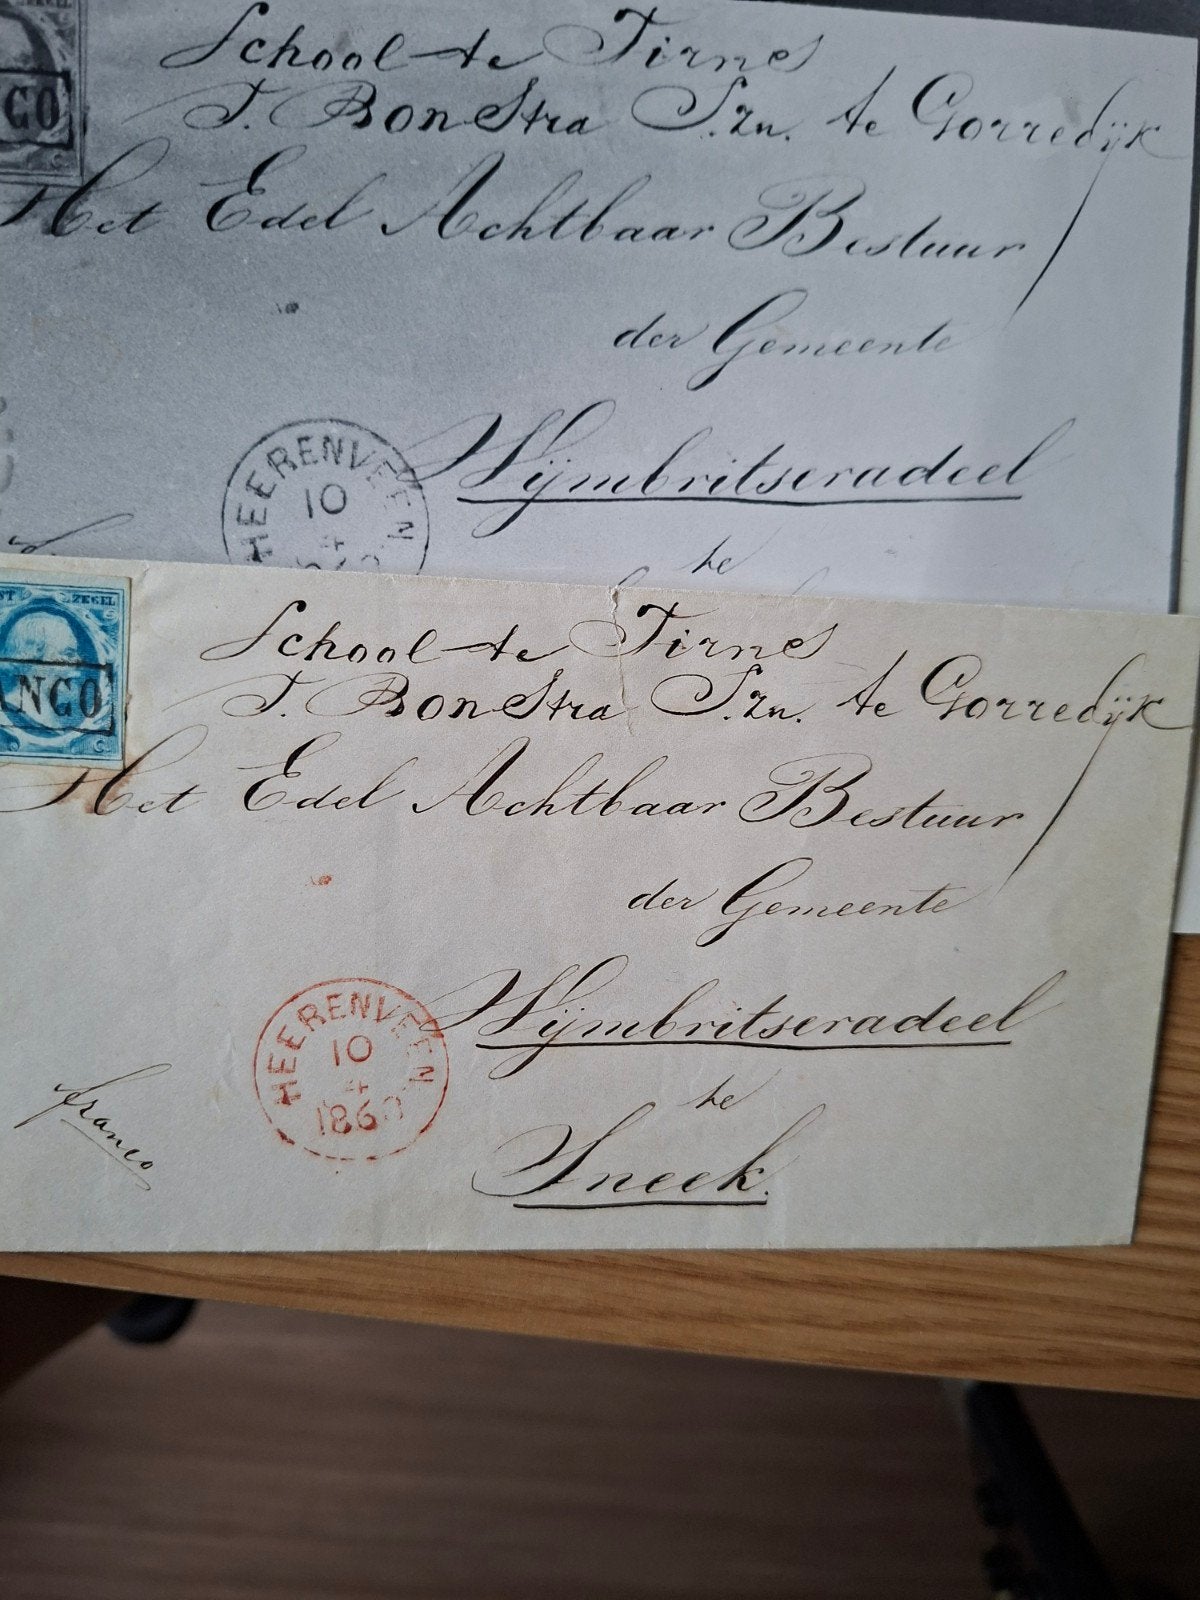 NGO
School te Tirns
T. Bonstra S.zn. te Gorredijk
Het Edel Achtbaar Bestuur
der Gemeente
Wijmbritseradeel
HEERENVEEN
10
4
te
ZEGEL
ANGO
School te Tirns
T. Bonstra S.zn. te Gorredijk
Het Edel Achtbaar Bestuur
der Gemeente
Wijmbritseradeel
HEERENVEEN
10
4
1860
te
franco
Sneek.